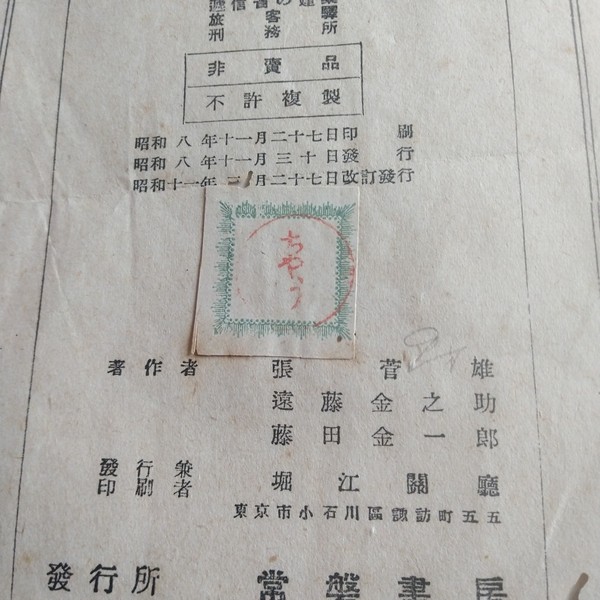 非賣品
不許複製
昭和八年十一月二十七日印刷
昭和八年十一月三十日發行
昭和十一年三月二十七日改訂發行
ちやう
著作者 張菅雄
遠藤金之助
藤田金一郎
發行兼印刷者 堀江關廳
東京市小石川區諏訪町五五
發行所 常磐書房